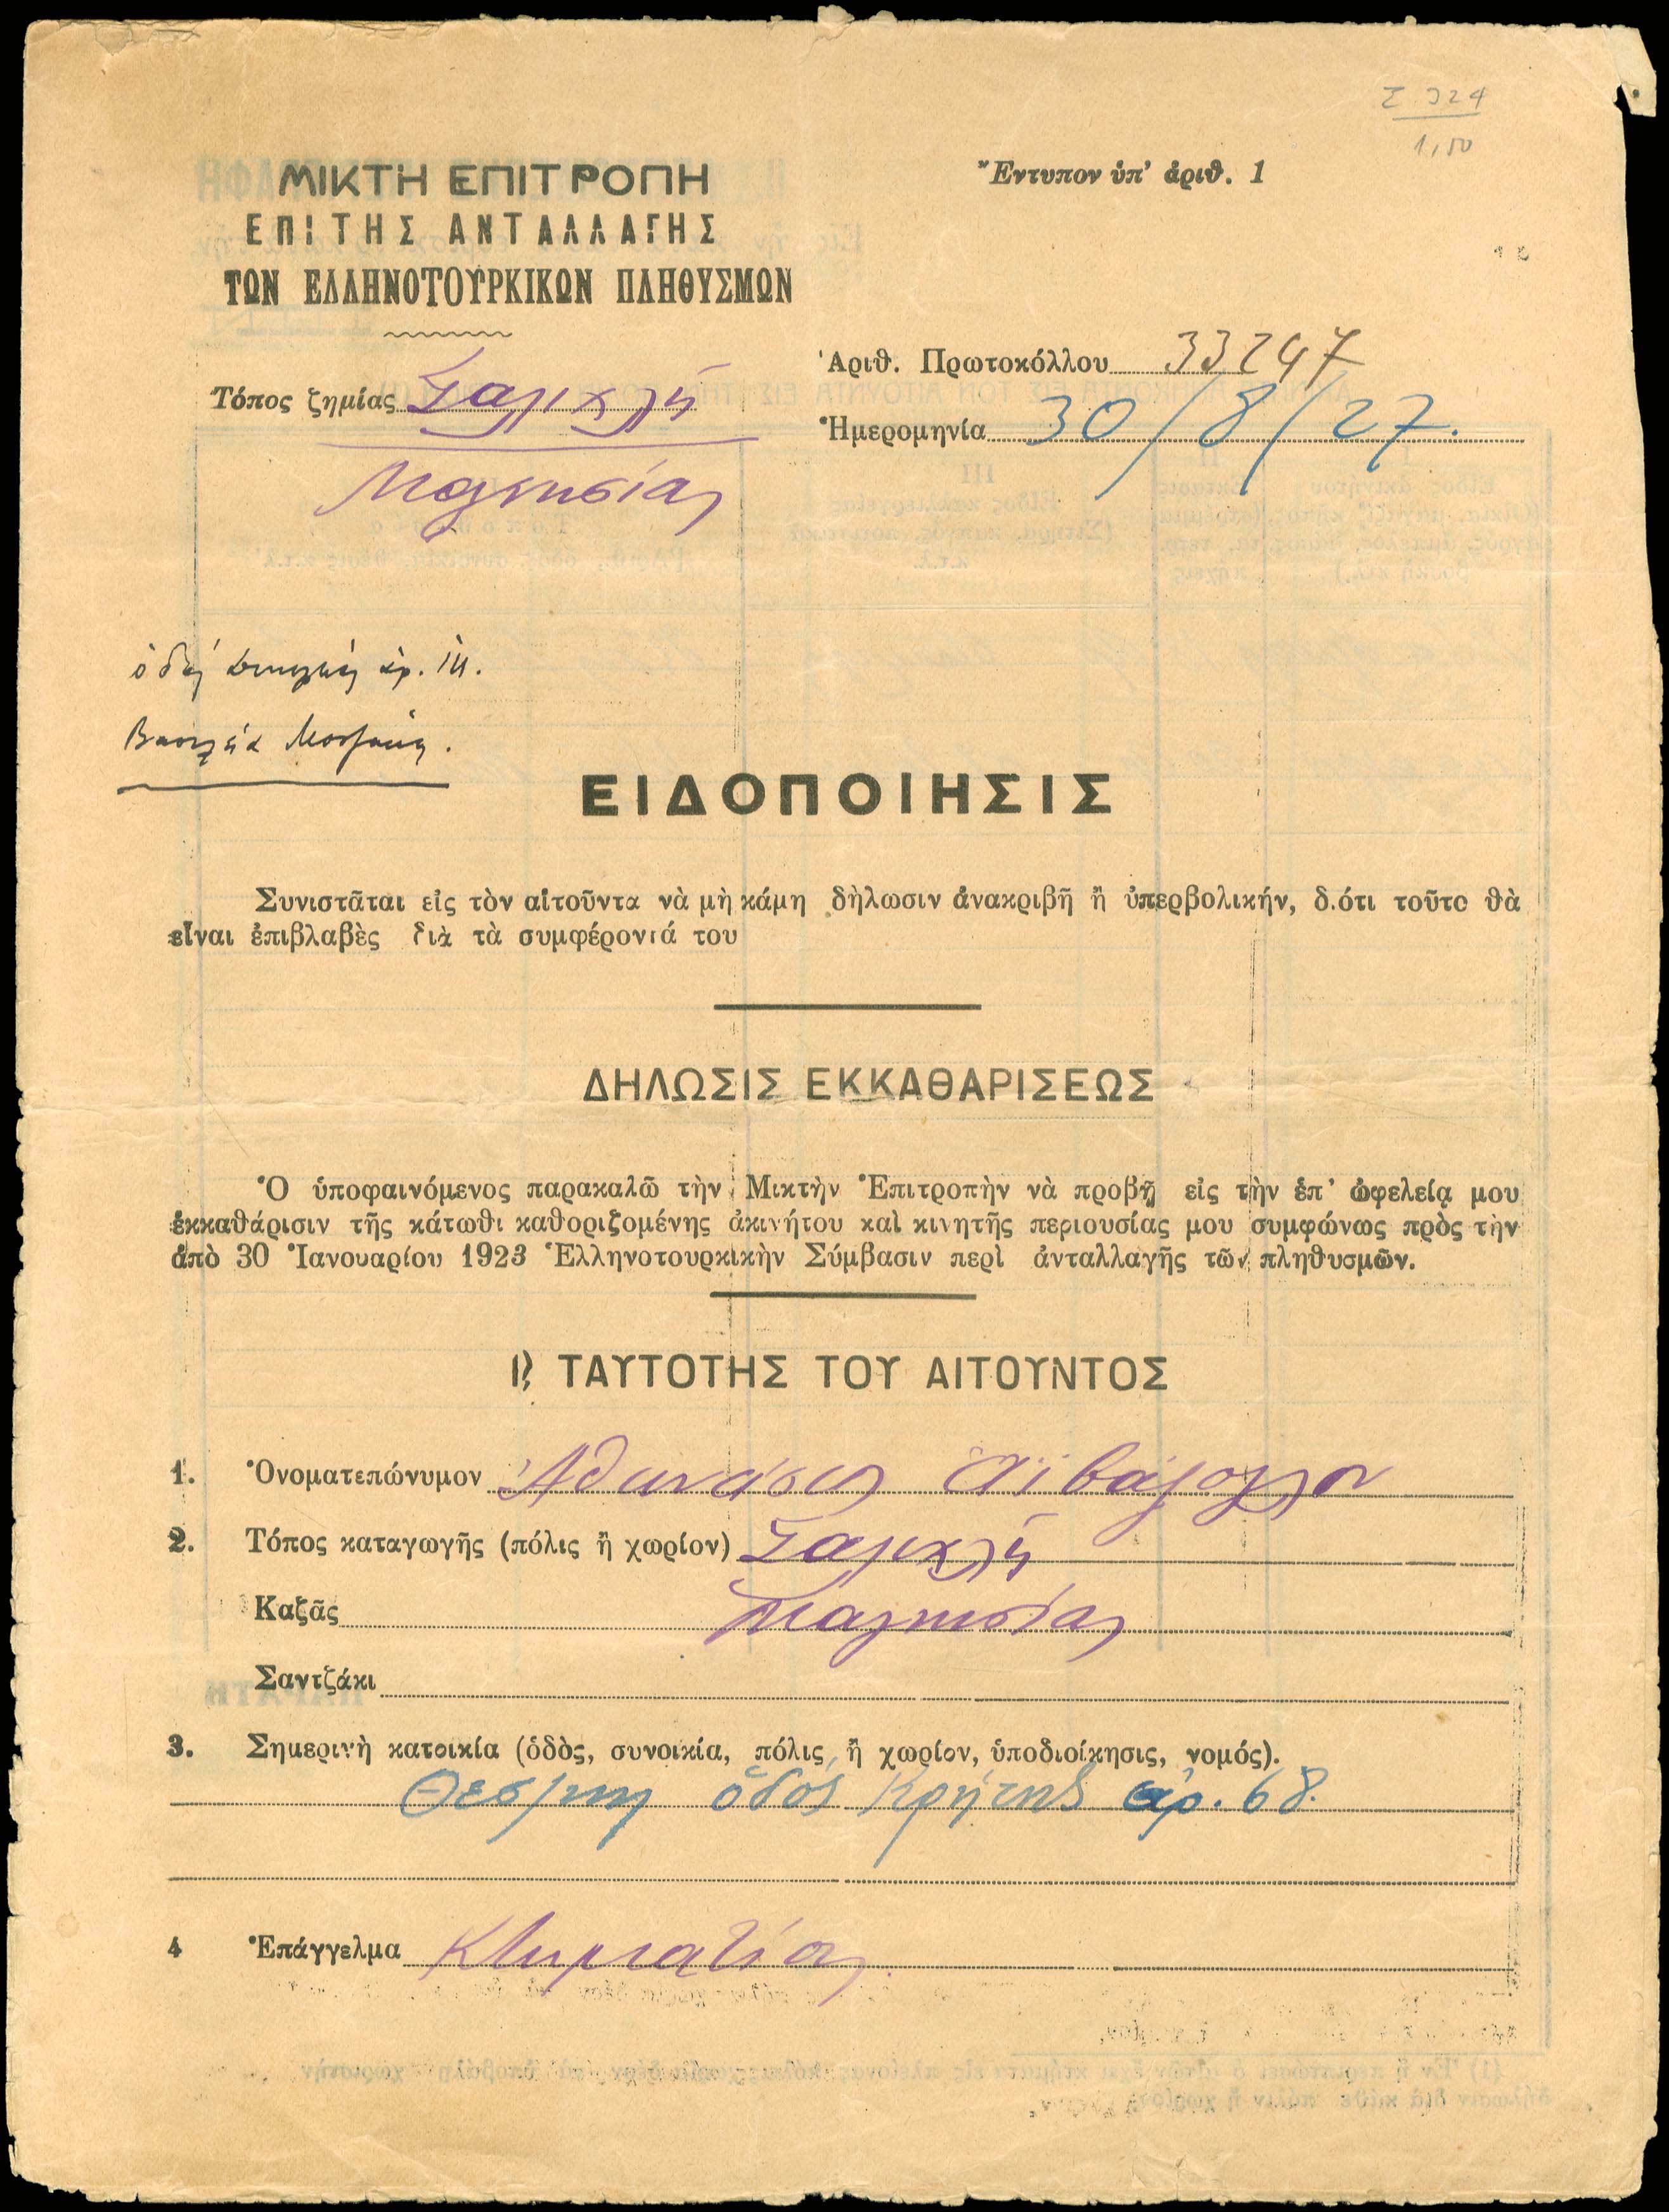 Ζ 324
1,50
ΜΙΚΤΗ ΕΠΙΤΡΟΠΗ
ΕΠΙ ΤΗΣ ΑΝΤΑΛΛΑΓΗΣ
ΤΩΝ ΕΛΛΗΝΟΤΟΥΡΚΙΚΩΝ ΠΛΗΘΥΣΜΩΝ
Ἔντυπον ὑπ' ἀριθ. 1
Ἀριθ. Πρωτοκόλλου 33247
Τόπος ζημίας Σαλιχλῆ
Μαγνησίας
Ἡμερομηνία 30/8/27.
ὁδός ἀρ.
ΕΙΔΟΠΟΙΗΣΙΣ
Συνιστᾶται εἰς τὸν αἰτοῦντα νὰ μὴ κάμῃ δήλωσιν ἀνακριβῆ ἢ ὑπερβολικήν, διότι τοῦτο θὰ
εἶναι ἐπιβλαβὲς διὰ τὰ συμφέροντά του
ΔΗΛΩΣΙΣ ΕΚΚΑΘΑΡΙΣΕΩΣ
Ὁ ὑποφαινόμενος παρακαλῶ τὴν Μικτὴν Ἐπιτροπὴν νὰ προβῇ εἰς τὴν ἐπ' ὠφελείᾳ μου
ἐκκαθάρισιν τῆς κάτωθι καθοριζομένης ἀκινήτου καὶ κινητῆς περιουσίας μου συμφώνως πρὸς τὴν
ἀπὸ 30 Ἰανουαρίου 1923 Ἑλληνοτουρκικὴν Σύμβασιν περὶ ἀνταλλαγῆς τῶν πληθυσμῶν.
ΤΑΥΤΟΤΗΣ ΤΟΥ ΑΙΤΟΥΝΤΟΣ
1. Ὀνοματεπώνυμον Ἀθανάσιος Ἀϊβάζογλου
2. Τόπος καταγωγῆς (πόλις ἢ χωρίον) Σαλιχλῆ
Καζᾶς Μαγνησίας
Σαντζάκι
3. Σημερινὴ κατοικία (ὁδὸς, συνοικία, πόλις, ἢ χωρίον, ὑποδιοίκησις, νομός).
Θεσ/νικη ὁδός Κρήτης ἀρ. 68.
4 Ἐπάγγελμα Κτηματίας